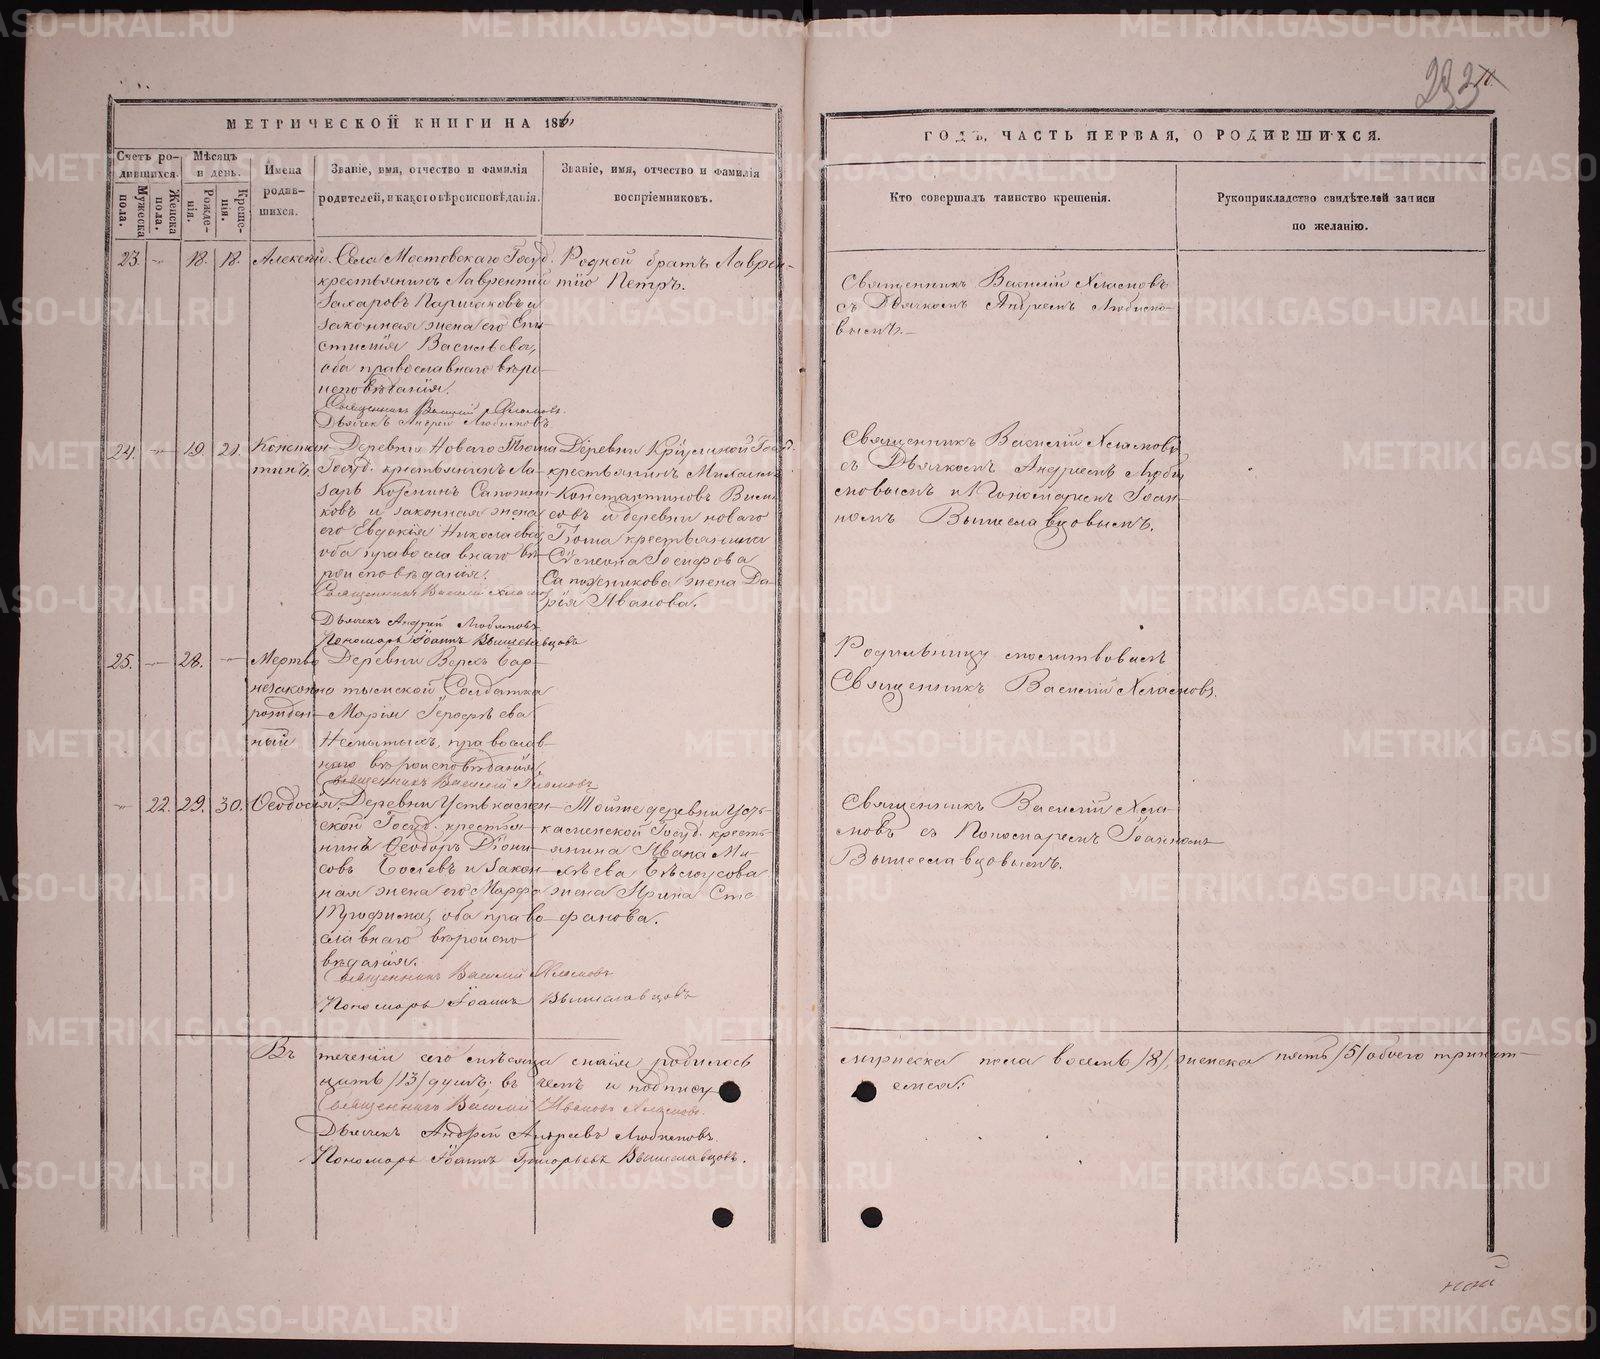 МЕТРИЧЕСКОЙ КНИГИ НА 186
ГОДЪ, ЧАСТЬ ПЕРВАЯ, О РОДИВШИХСЯ.
Счетъ ро-
дившихся.
Мужеска пола.
Женска пола.
Мѣсяцъ
и день.
Рожде-
нія.
Креще-
нія.
Имена
родив-
шихся.
Званіе, имя, отчество и фамилія
родителей, и какого вѣроисповѣданія.
Званіе, имя, отчество и фамилія
воспріемниковъ.
Кто совершалъ таинство крещенія.
Рукоприкладство свидѣтелей записи
по желанію.
23 18. 18. Алексѣй.
Села Мостовскаго Госуд.
крестьянинъ Лаврентій
Захаровъ Паршаковъ и
законная жена его
Васильева,
оба православнаго вѣро
исповѣданія.
Священникъ Василій Хламовъ.
Дьячекъ Андрей Любимовъ
Родной братъ Лаврен-
тію Петръ.
Священникъ Василій Хламовъ
съ Дьячкомъ Андреемъ Любимо-
вымъ.
24. 19. 21. Констан-
тинъ,
Деревни Новаго
Госуд. крестьянинъ Ла-
зарь Козминъ Сапожни-
ковъ и законная жена
его Евдокія Николаева,
оба православнаго вѣ-
роисповѣданія.
Священникъ Василій Хламовъ
Дьячекъ Андрей Любимовъ
Пономарь Іоаннъ Вышеславцовъ
Деревни Госуд.
крестьянинъ
Константиновъ
и деревни новаго
крестьянина
Семена Іосифова
Сапожникова жена Да-
рія Иванова.
Священникъ Василій Хламовъ
съ Дьячкомъ Андреемъ Люби
мовымъ и Пономаремъ Іоан-
номъ Вышеславцовымъ.
25. 28. Мертво
незаконно
рожден-
ный
Деревни Верхъ Бар-
тымской Солдатка
Марія Герофѣева
православ-
наго вѣроисповѣданія.
Священникъ Василій Хламовъ
Родильницу молитвовалъ
Священникъ Василій Хламовъ.
22. 29. 30. Ѳеодосія.
Деревни Устькасмен-
ской Госуд. крестья-
нинъ Ѳеодоръ Діони-
совъ и закон-
ная жена его Марфа
Трофимова, оба право
славнаго вѣроиспо
вѣданія.
Священникъ Василій Хламовъ
Пономарь Іоаннъ Вышеславцовъ
Тойже деревни Усть-
касменской Госуд. кресть-
янина Ивана Ми-
хѣева Бѣлоусова
жена Ирина Сте
фанова.
Священникъ Василій Хла-
мовъ съ Пономаремъ Іоанномъ
Вышеславцовымъ.
Въ теченіи сего мѣсяца родилось
мужеска пола восемь /8/, женска пять /5/ обоего тринат-
цать /13/ душъ; въ чемъ и подпису
емся:
Священникъ Василій Ивановъ Хламовъ.
Дьячекъ Андрей Андреевъ Любимовъ.
Пономарь Іоаннъ Григорьевъ Вышеславцовъ.
METRIKI.GASO-URAL.RU